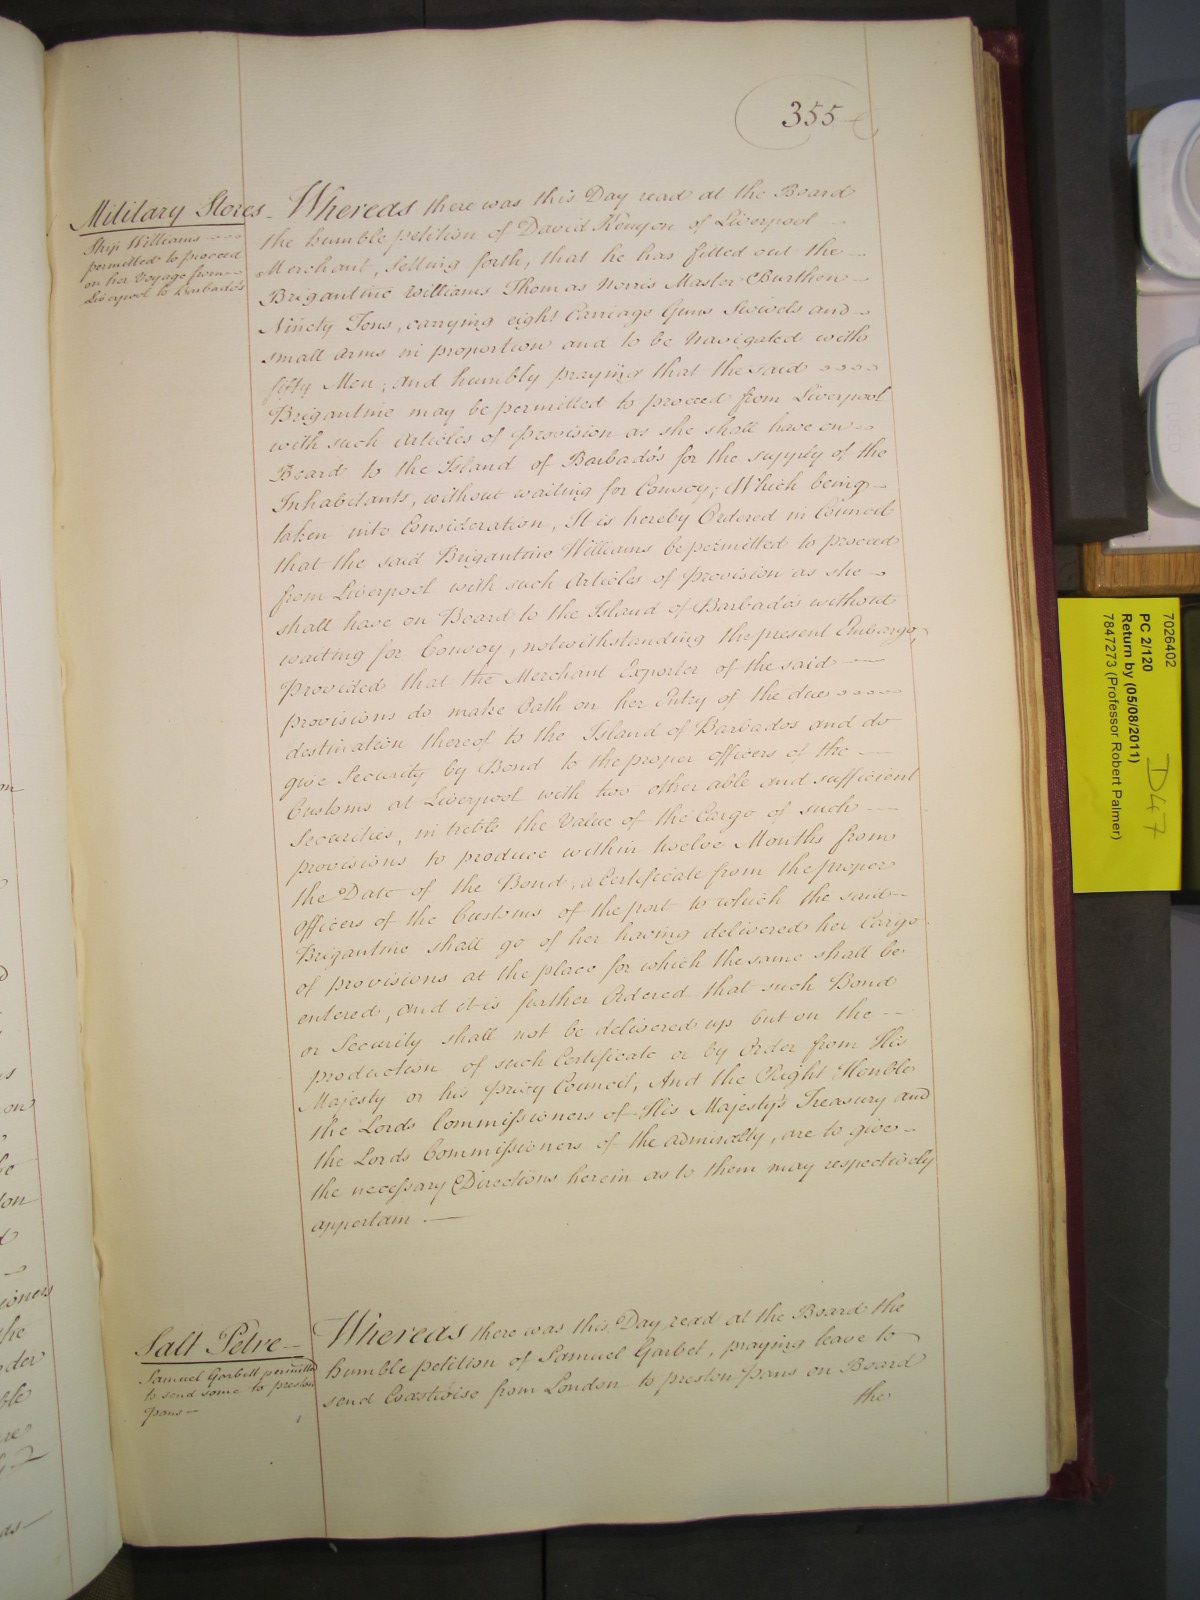 355
Military Stores
Ship Williams
permitted to proceed
on her Voyage from
Liverpool to Barbados
Whereas there was this Day read at the Board
the humble petition of David Kenyon of Liverpool
Merchant, Setting forth, that he has fitted out the
Brigantine Williams Thomas Norris Master Burthen
Ninety Tons, carrying eight Carriage Guns Swivels and
small Arms in proportion and to be Navigated with
fifty Men, and humbly praying that the said
Brigantine may be permitted to proceed from Liverpool
with such Articles of Provision as she shall have on
Board to the Island of Barbados for the supply of the
Inhabitants, without waiting for Convoy; Which being
taken into Consideration, It is hereby Ordered in Council
that the said Brigantine Williams be permitted to proceed
from Liverpool with such Articles of Provision as she
shall have on Board to the Island of Barbados without
waiting for Convoy, notwithstanding the present Embargo,
Provided that the Merchant Exporter of the said
provisions do make Oath on her Entry of the due
destination thereof to the Island of Barbados and do
give Security by Bond to the proper Officers of the
Customs at Liverpool with two other able and sufficient
Securities, in treble the Value of the Cargo of such
provisions to produce within twelve Months from
the Date of the Bond, a Certificate from the proper
Officers of the Customs of the port to which the said
Brigantine shall go of her having delivered her Cargo
of provisions at the place for which the same shall be
entered, and it is further Ordered that such Bond
or Security shall not be delivered up but on the
production of such Certificate or by Order from His
Majesty or his Privy Council, And the Right Honble
the Lords Commissioners of His Majesty's Treasury and
the Lords Commissioners of the Admiralty, are to give
the necessary Directions herein as to them may respectively
appertain.
Salt Petre
Samuel Garbett permitted
to send some to preston
pans
Whereas there was this Day read at the Board the
humble petition of Samuel Garbet, praying leave to
send Coastwise from London to preston pans on Board
the
7026402
PC 2/120
Return by (05/08/2011)
7847273 (Professor Robert Palmer)
D47